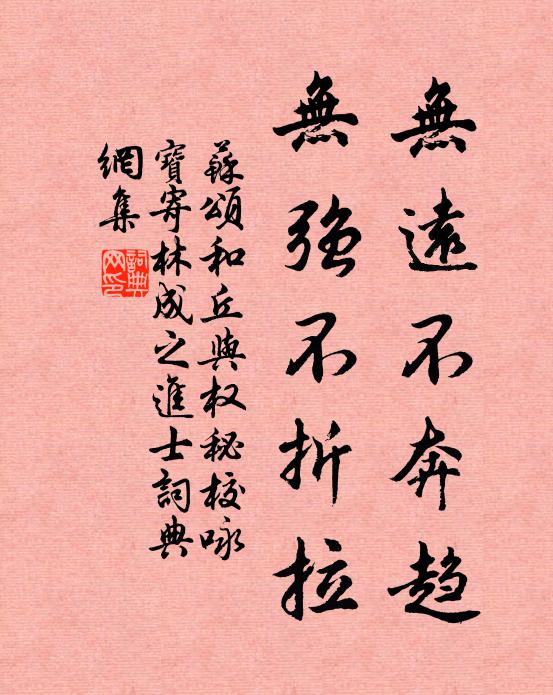 無遠不奔趋
無強不折拉
蘇頌和丘與权秘校咏
寶寄林成之進士詞典
網集
詞典
网印